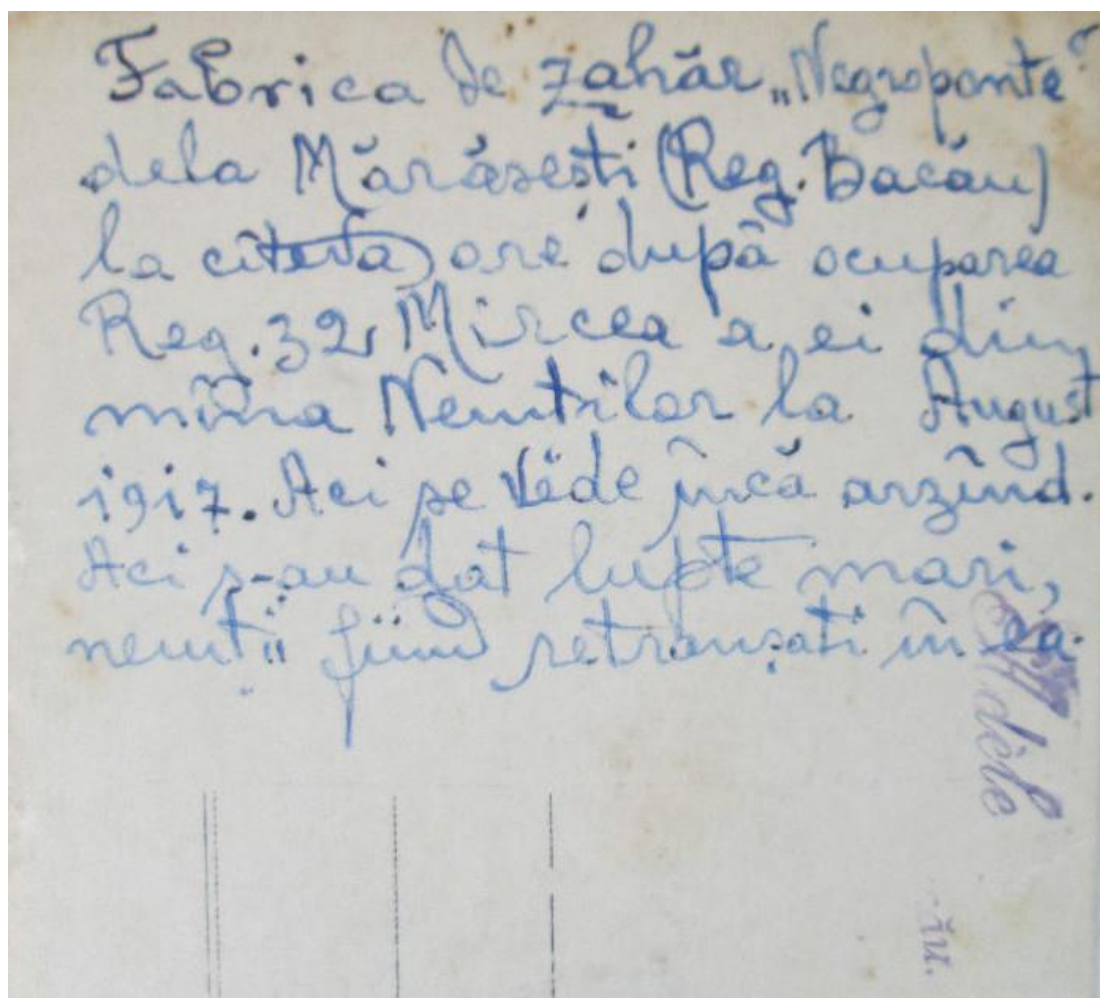 Fabrica de zahăr „Negroponte”
dela Mărăsești (Reg. Bacău)
la cîteva ore după ocuparea
Reg. 32 Mircea a ei din
mîna Nemților la August
1917. Aci se vede încă arzînd.
Aci s-au dat lupte mari,
nemții fiind retranșati în ea.